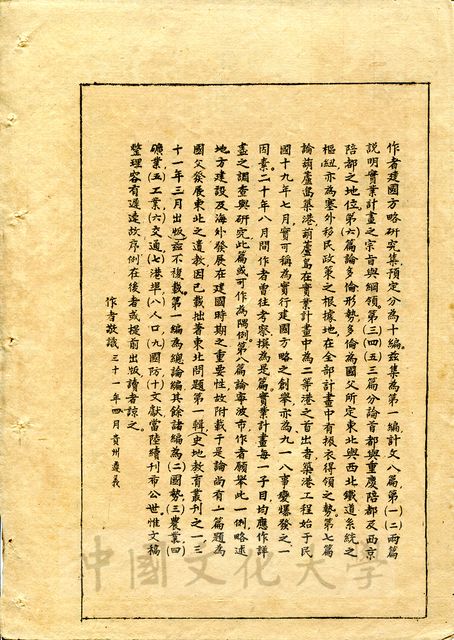 作者建國方略研究集預定分為十編茲集為第一編計文八篇第(一)(二)兩篇
說明實業計畫之宗旨與綱領。第(三)(四)(五)三篇分論首都與重慶陪都及西京
陪都之地位。第(六)篇論多倫形勢,多倫為國父所定東北與西北鐵道系統之
樞紐,亦為塞外移民政策之根據地,在全部計畫中有振衣得領之勢。第七篇
論葫蘆島築港,葫蘆島在實業計畫中為二等港之首出者,築港工程始于民
國十九年七月,實可稱為實行建國方略之創舉,亦為九一八事變爆發之一
因素。二十年八月間作者曾往考察,撰為是篇。實業計畫每一子目均應作詳
盡之調查與研究,此篇或可作為隅例。第八篇論寧波市,作者願舉此一例,略述
地方建設及海外發展在建國時期之重要性,故附載于是。論尚有一篇題為
國父發展東北之遺教,因已載拙著東北問題第一輯,(史地教育叢刊之一,三
十一年三月出版)茲不複載。第一編為總論編,其餘諸編為(二)國勢(三)農業(四)
礦業(五)工業(六)交通(七)港埠(八)人口(九)國防(十)文獻,當陸續刊布公世。惟文稿
整理容有遲速,故序例在後者或提前出版,讀者諒之。
作者敬識 三十一年四月貴州遵義
中國文化大學